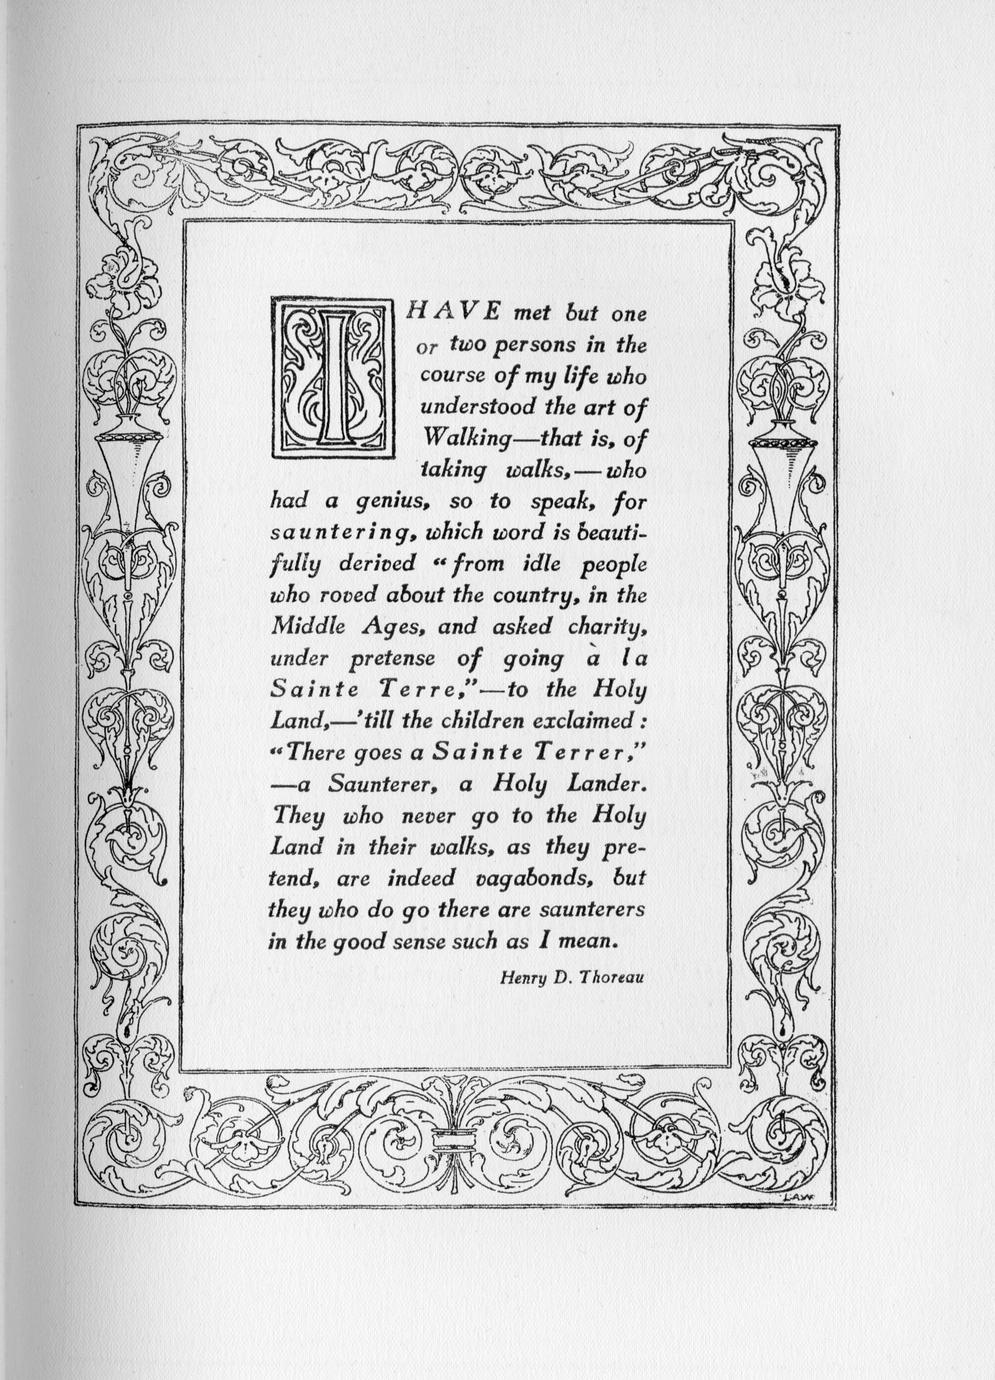 I HAVE met but one
or two persons in the
course of my life who
understood the art of
Walking—that is, of
taking walks,—who
had a genius, so to speak, for
sauntering, which word is beauti-
fully derived “from idle people
who roved about the country, in the
Middle Ages, and asked charity,
under pretense of going à la
Sainte Terre,”—to the Holy
Land,—’till the children exclaimed:
“There goes a Sainte Terrer,”
—a Saunterer, a Holy Lander.
They who never go to the Holy
Land in their walks, as they pre-
tend, are indeed vagabonds, but
they who do go there are saunterers
in the good sense such as I mean.
Henry D. Thoreau
LAW